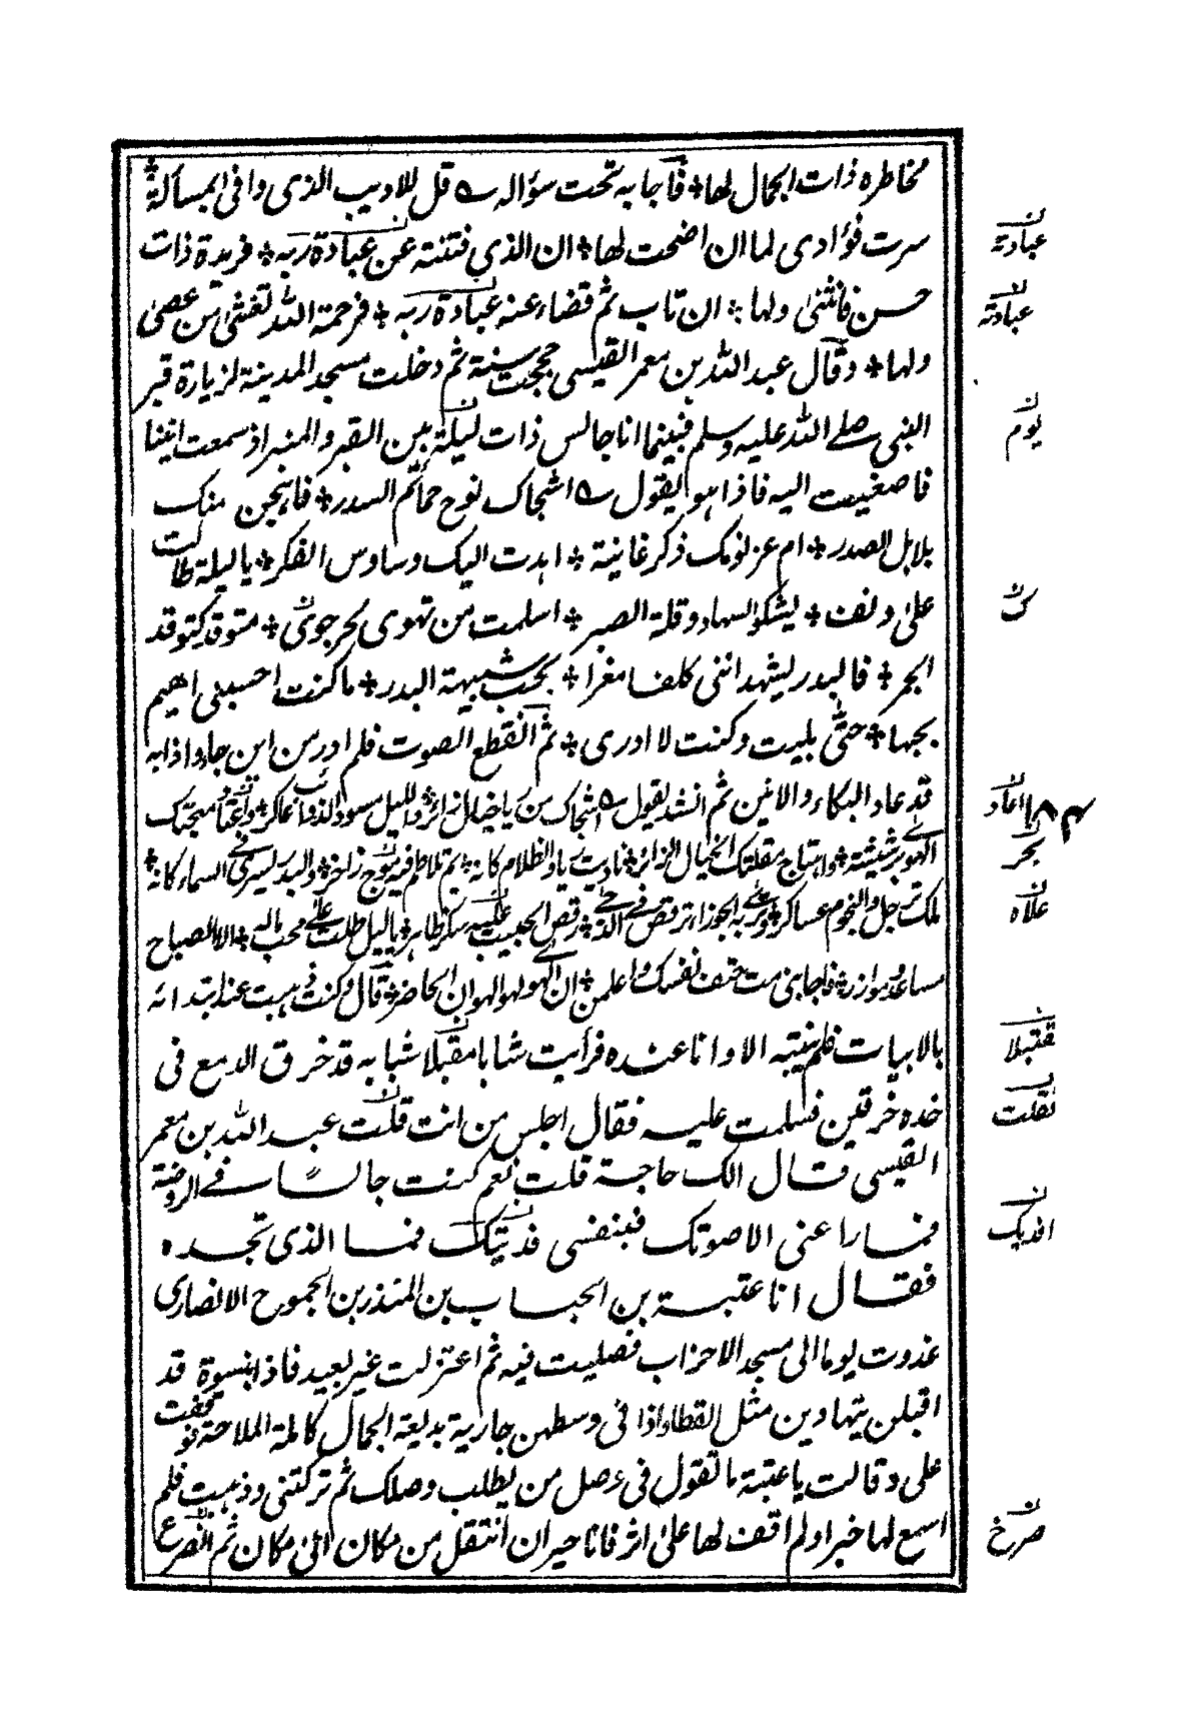 مخاطره ذات الجمال لها * فاجابه تحت سؤاله قل للاديب الذى وافى بمسألة *
سرت فؤادى لما ان اضحت لها * ان الذي فتنته عن عبادة ربه * فريدة ذات
حسن فانثنى ولها * ان تاب ثم قضاء عنه عبادة ربه * فرحمة الله تغشى من عصى
ولها * وقال عبد الله بن معمر القيسى حججت سنة ثم دخلت مسجد المدينة لزيارة قبر
النبى صلے الله عليه وسلم فبينما انا جالس ذات ليلة بين القبر والمنبر اذ سمعت انينا
فاصغيت اليه فاذا هو يقول اشجاك نوح حمائم السدر * فاهجن منك
بلابل الصدر * ام عز نومك ذكر غانية * اهدت اليك وساوس الفكر * يا ليلة طالت
على دنف * يشكو السهاد وقلة الصبر * اسلمت من تهوى لحر جوى * متوقد كتوقد
الجمر * فالبدر يشهد اننى كلف مغرا * بحب شبيهة البدر * ما كنت احسبنى اهيم
بحبها * حتى بليت وكنت لا ادرى * ثم انقطع الصوت فلم ادر من اين جاء واذا به
قد عاد البكاء والانين ثم انشد يقول اشجاك من ريا خيال زائر * والليل مسود الذوائب عاكر * واعتاد مهجتك
الهوى برسيسه * واهتاج مقلتك الخيال الزائر * ناديت ريا والظلام كانه * يم تلاطم فيه موج زاخر * والبدر يسرى فى السماء كانه *
ملك ترجل والنجوم عساكر * وترى به الجوزاء ترقص فى الدجى * رقص الحبيب عليه سكر ظاهر * يا ليل طلت على محب ما له * الا الصباح
مساعد وموازر * فاجابنى مت حتف نفسك واعلمن * ان الهوى لهو الهوان الحاضر * قال وكنت ذهبت عند ابتدائه
بالابيات فلم ينتبه الا وانا عنده فرأيت شابا مقبلا شبابه قد خرق الدمع فى
خده خرقين فسلمت عليه فقال اجلس من انت قلت عبد الله بن معمر
القيسى قال الك حاجة قلت نعم كنت جالسًا فے الروضة
فما راعنى الا صوتك فبنفسى فديتك فما الذى تجده
فقال انا عتبة بن الحباب بن المنذر بن الجموح الانصارى
غدوت يوما الى مسجد الاحزاب فصليت فيه ثم اعتزلت غير بعيد فاذا بنسوة قد
اقبلن يتهادين مثل القطا واذا فى وسطهن جارية بديعة الجمال كاملة الملاحة فوقفت
على وقالت يا عتبة ما تقول فى وصل من يطلب وصلك ثم تركتنى وذهبت فلم
اسمع لها خبرا ولم اقف لها على اثر فانا حيران انتقل من مكان الى مكان ثم انصرع
عبادته
عبادته
يوم
اعاد
بحر
علاه
مقتبلا
فقلت
افديك
صرخ